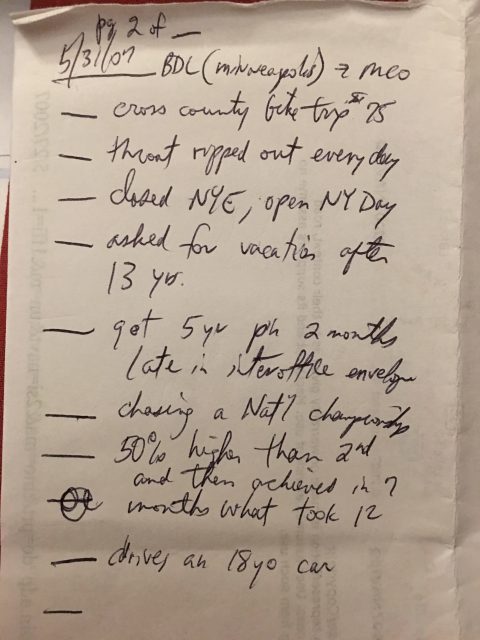 pg 2 of _
5/31/07 BDL (minneapolis) = MCO
— cross county bike trip 75
— throat ripped out every day
— closed NYE, open NY Day
— asked for vacation after
13 yr.
— get 5 yr pin 2 months
late in interoffice envelope
— chasing a Nat'l championship
— 50% higher than 2nd
and then achieved in 7
months what took 12
— drives an 18yo car
—